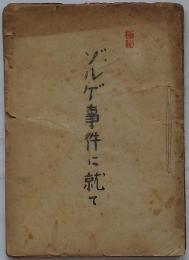 ゾルゲ事件に就て